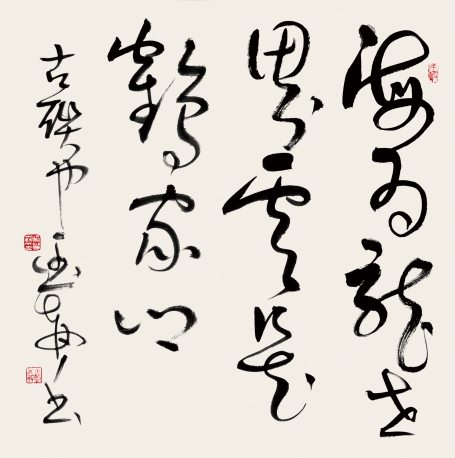 海為龍世
界雲是
鶴家鄉
古聯 書